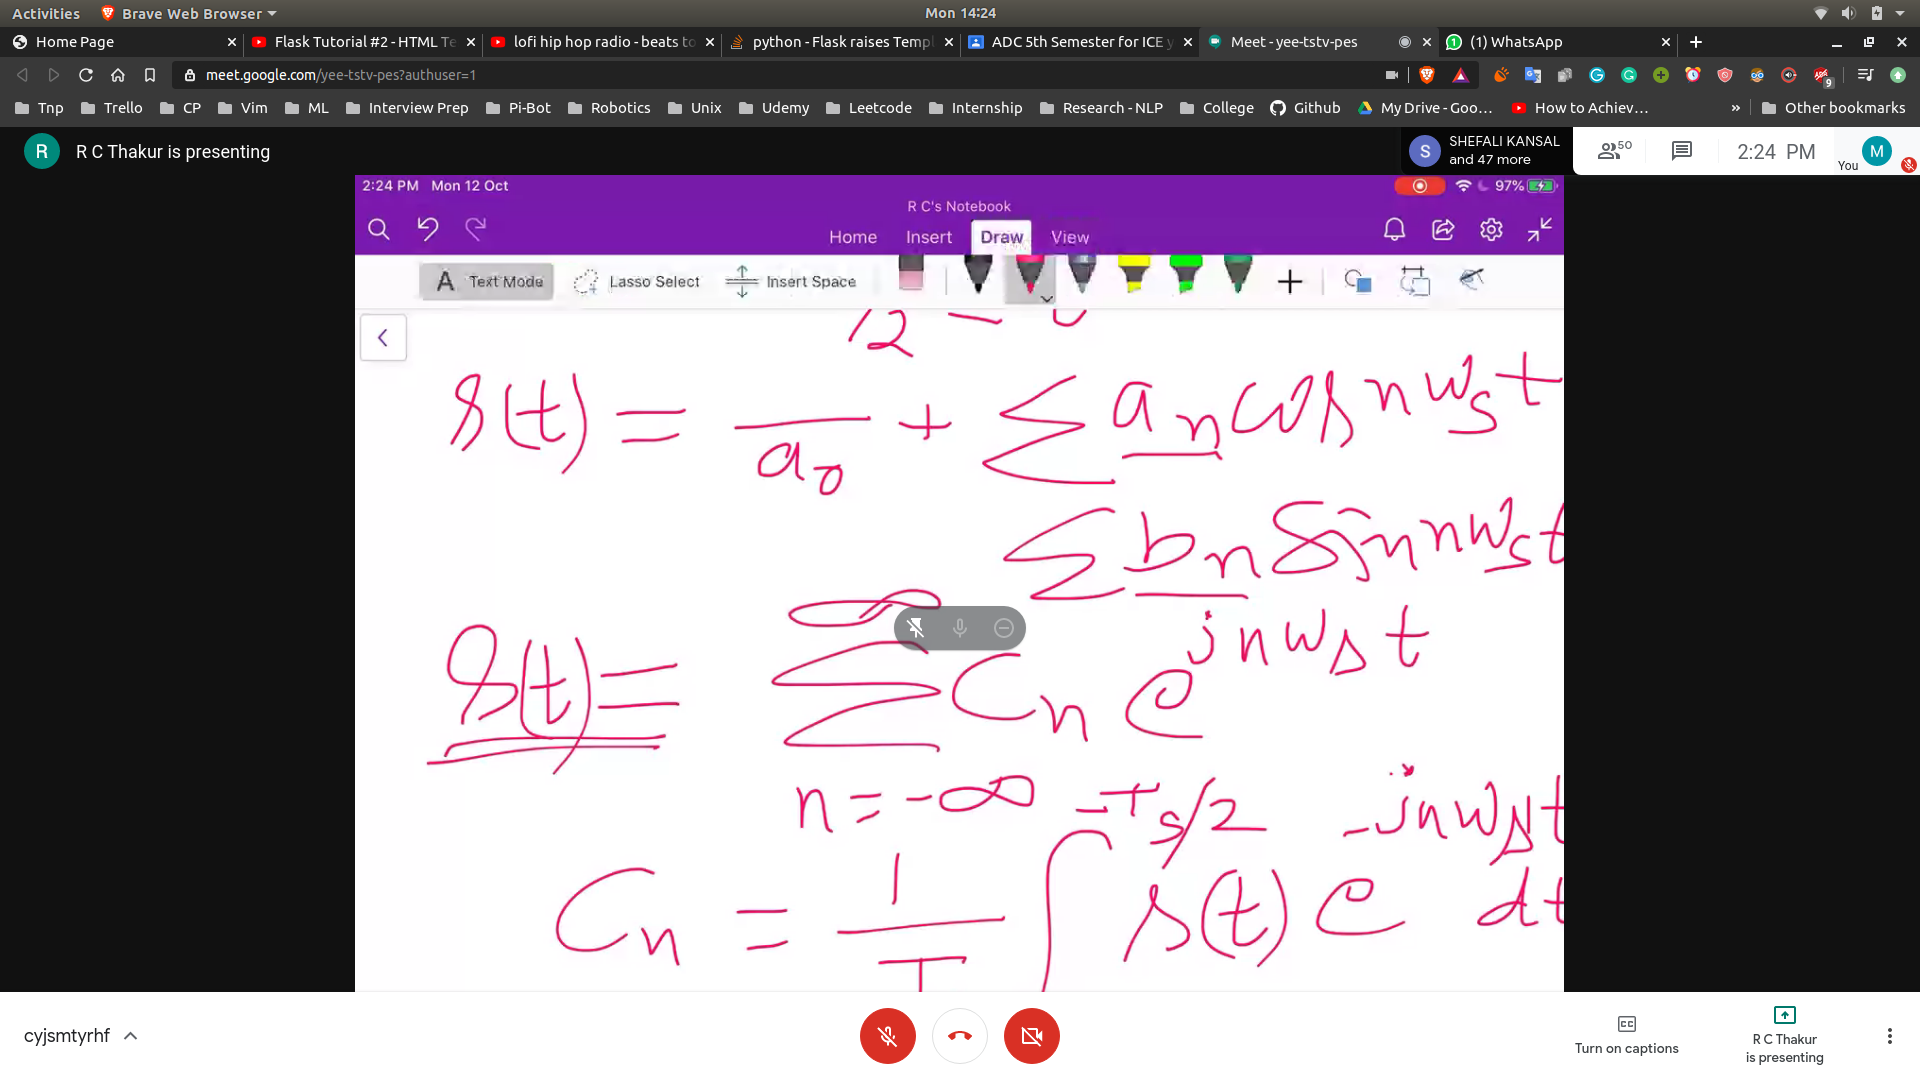 Activities Brave Web Browser Mon 14:24
Home Page Flask Tutorial #2 - HTML Te lofi hip hop radio - beats to python - Flask raises Templ ADC 5th Semester for ICE y Meet - yee-tstv-pes (1) WhatsApp
meet.google.com/yee-tstv-pes?authuser=1 9
Tnp Trello CP Vim ML Interview Prep Pi-Bot Robotics Unix Udemy Leetcode Internship Research - NLP College Github My Drive - Goo… How to Achiev… » Other bookmarks
R R C Thakur is presenting S SHEFALI KANSAL and 47 more 50 2:24 PM You M
2:24 PM Mon 12 Oct 97%
R C's Notebook
Home Insert Draw View
A Text Mode Lasso Select Insert Space
s(t) = a₀ + Σ aₙ cos nwₛt
Σ bₙ Sin nwₛt
S(t) = Σ Cₙ e^jnwₛt
n = -∞
-Tₛ/2 -jnwₛt
Cₙ = 1/T ∫ s(t) e dt
cyjsmtyrhf Turn on captions R C Thakur is presenting